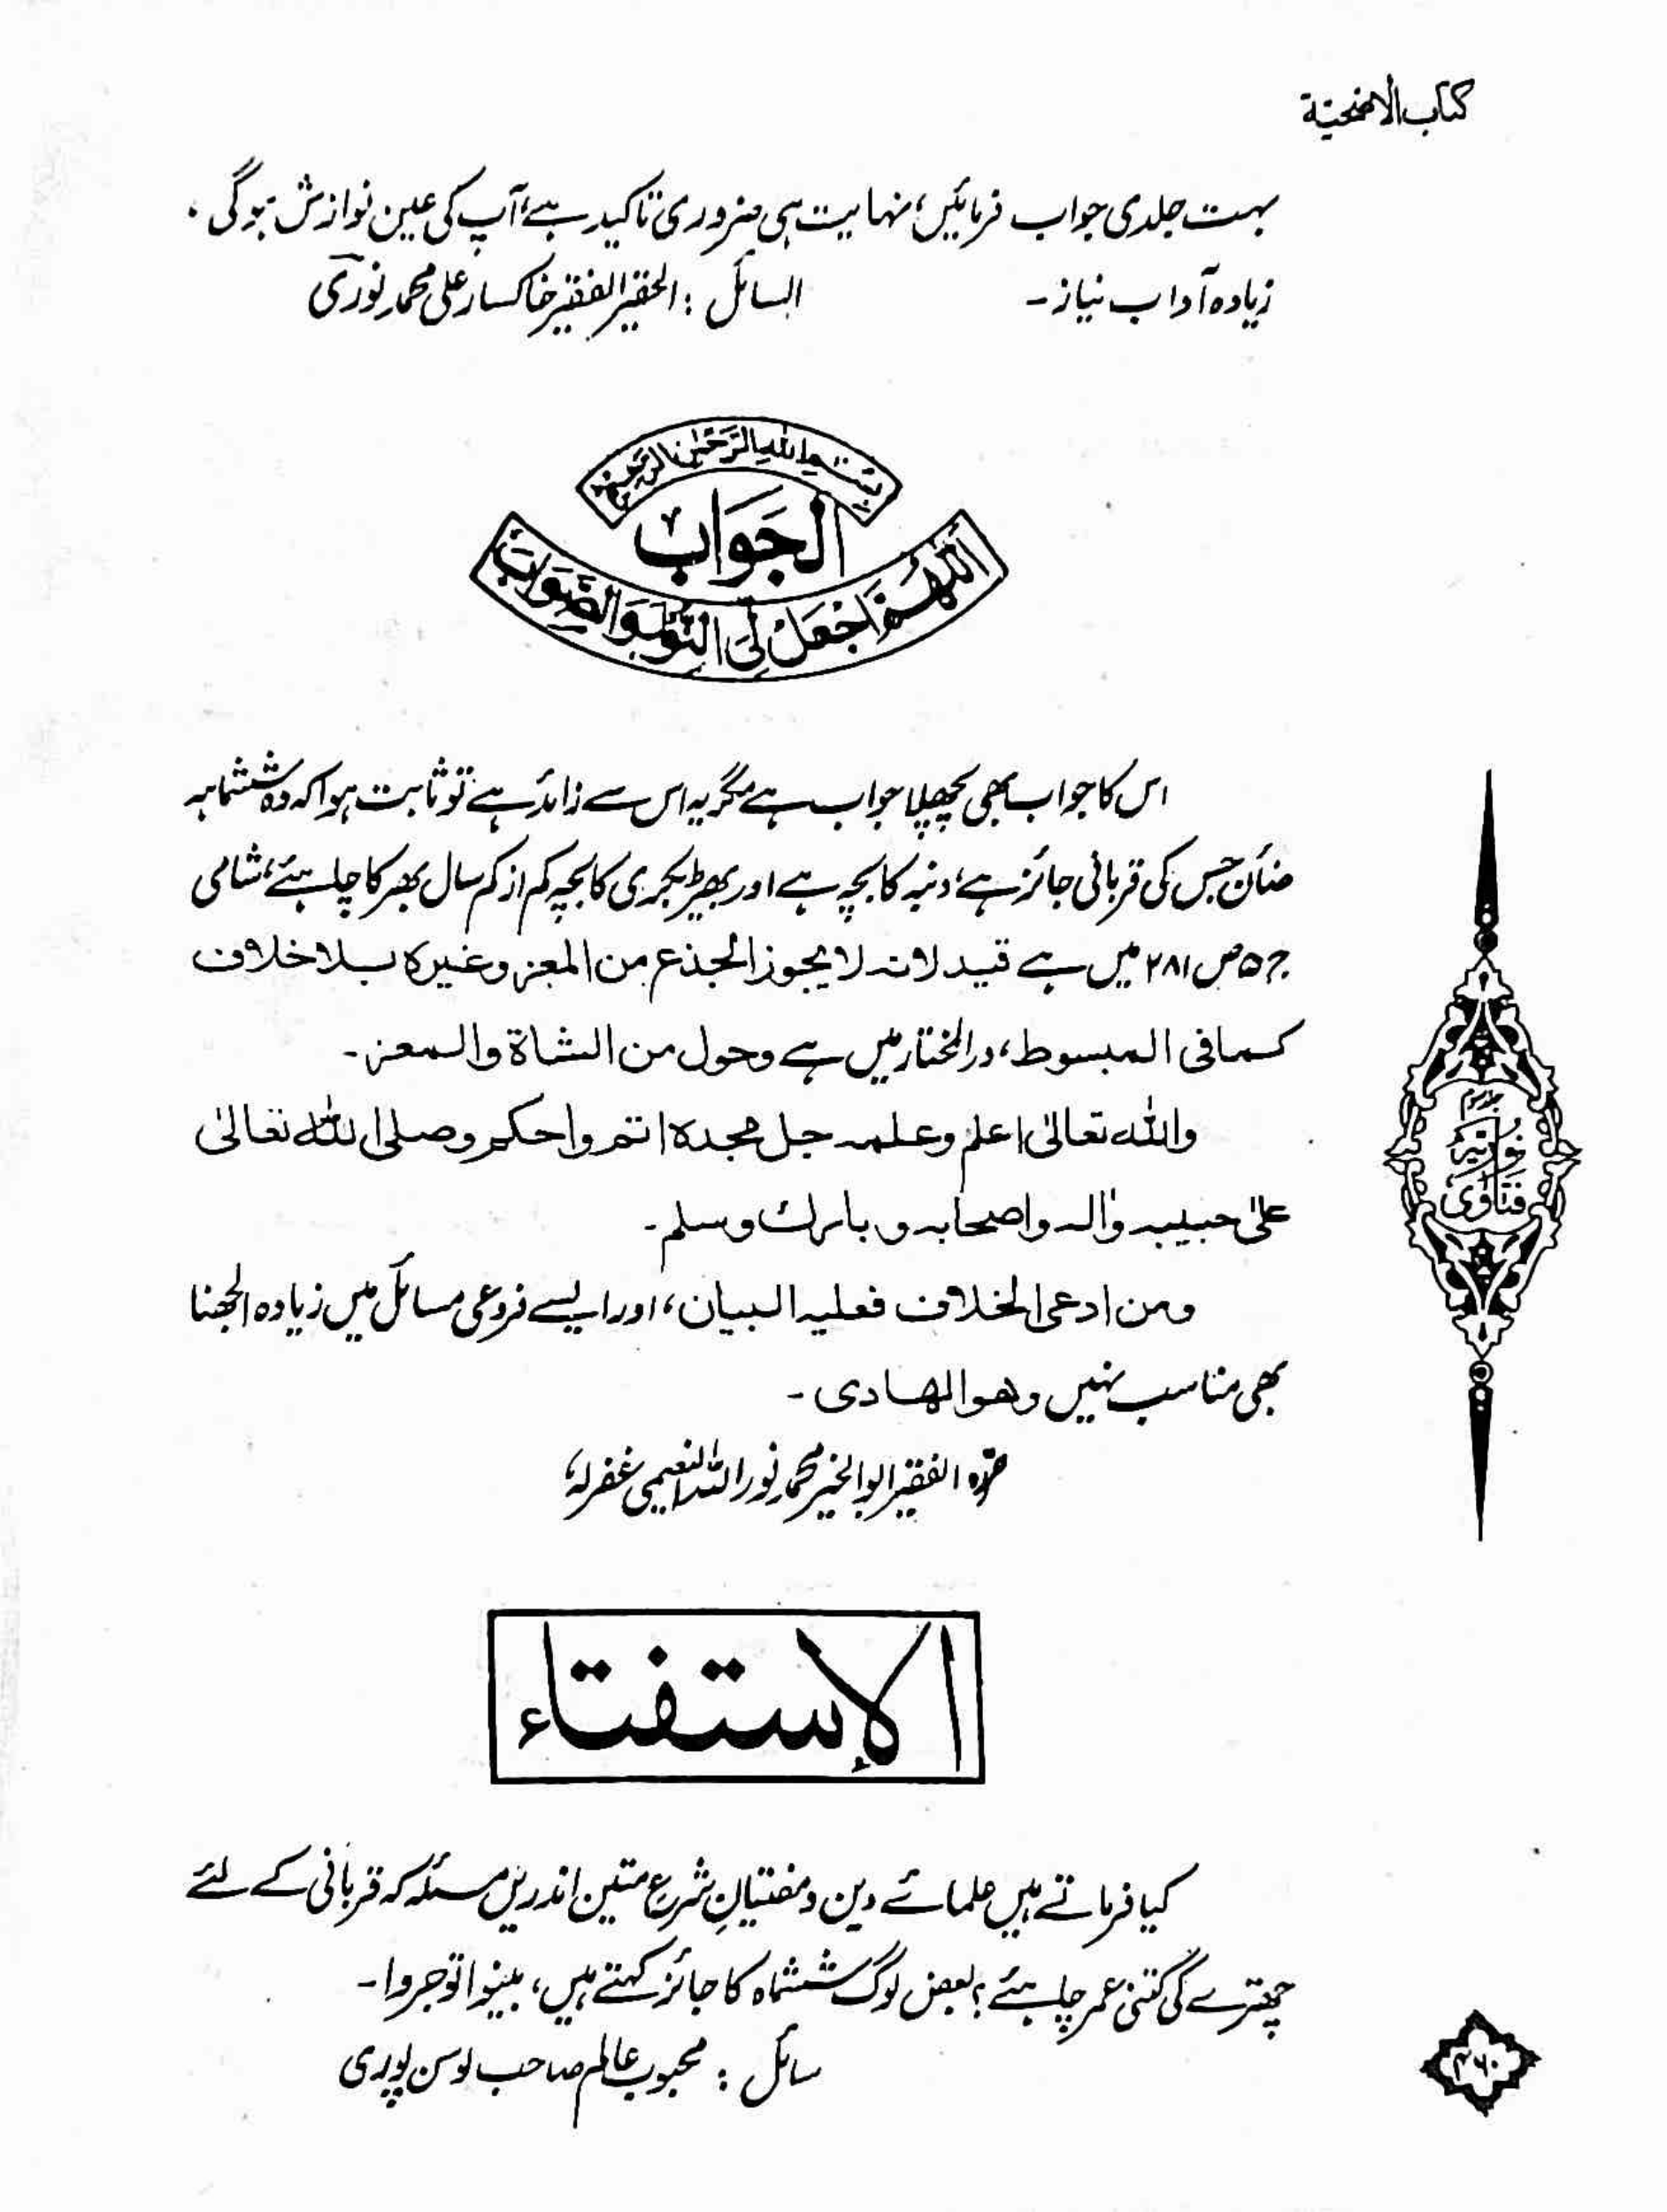 کتاب الاضحیۃ
بہت جلدی جواب فرمائیں، نہایت ہی ضروری تاکید ہے، آپ کی عین نوازش ہوگی۔
زیادہ آداب نیاز۔ السائل : الحقیر الفقیر خاکسار علی محمد نوری
بِسْمِ اللہِ الرَّحْمٰنِ الرَّحِیْمِ
الجَوَابُ
اَللّٰھُمَّ اجْعَلْ لِیَ النُّوْرَ وَالصَّوَابَ
اس کا جواب بھی پچھلا جواب ہے مگر یہ اس سے زائد ہے تو ثابت ہوا کہ وہ ششماہہ
ضأن جس کی قربانی جائز ہے، دنبہ کا بچہ ہے اور بھیڑ بکری کا بچہ کم از کم سال بھر کا چاہئے، شامی
ج ۵ ص ۲۸۱ میں ہے قید لانہ لا یجوز الجذع من المعز وغیرہ بلا خلاف
کما فی المبسوط، در المختار میں ہے وحول من الشاۃ والمعز۔
واللہ تعالیٰ اعلم وعلمہ جل مجدہ اتم واحکم وصلی اللہ تعالیٰ
علیٰ حبیبہ واٰلہ واصحابہ وبارك وسلم۔
ومن ادعی الخلاف فعلیہ البیان، اور ایسے فروعی مسائل میں زیادہ الجھنا
بھی مناسب نہیں وھو الھادی۔
حررہ الفقیر ابو الخیر محمد نور اللہ النعیمی غفرلہ،
جلد سوم
فتاوٰی نوریہ
الاِستفتاء
کیا فرماتے ہیں علمائے دین و مفتیانِ شرع متین اندریں مسئلہ کہ قربانی کے لئے
چھترے کی کتنی عمر چاہئے؟ بعض لوگ ششماہ کا جائز کہتے ہیں، بینوا توجروا۔
سائل : محبوب عالم صاحب لوسن پوری
۴۶۰